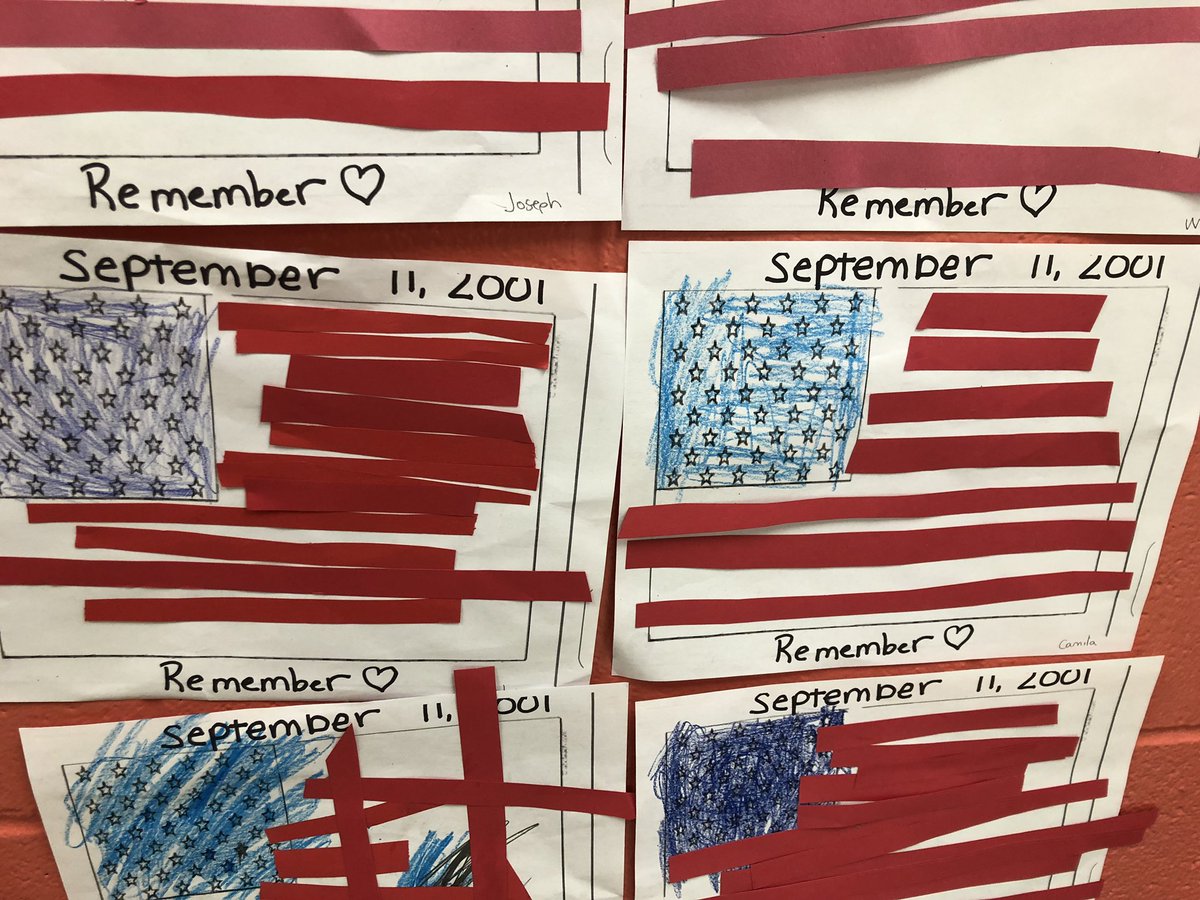 Remember ♡
Joseph
Remember ♡
September 11, 2001
Remember ♡
September 11, 2001
Remember ♡
Camila
September 11, 2001
September 11, 2001